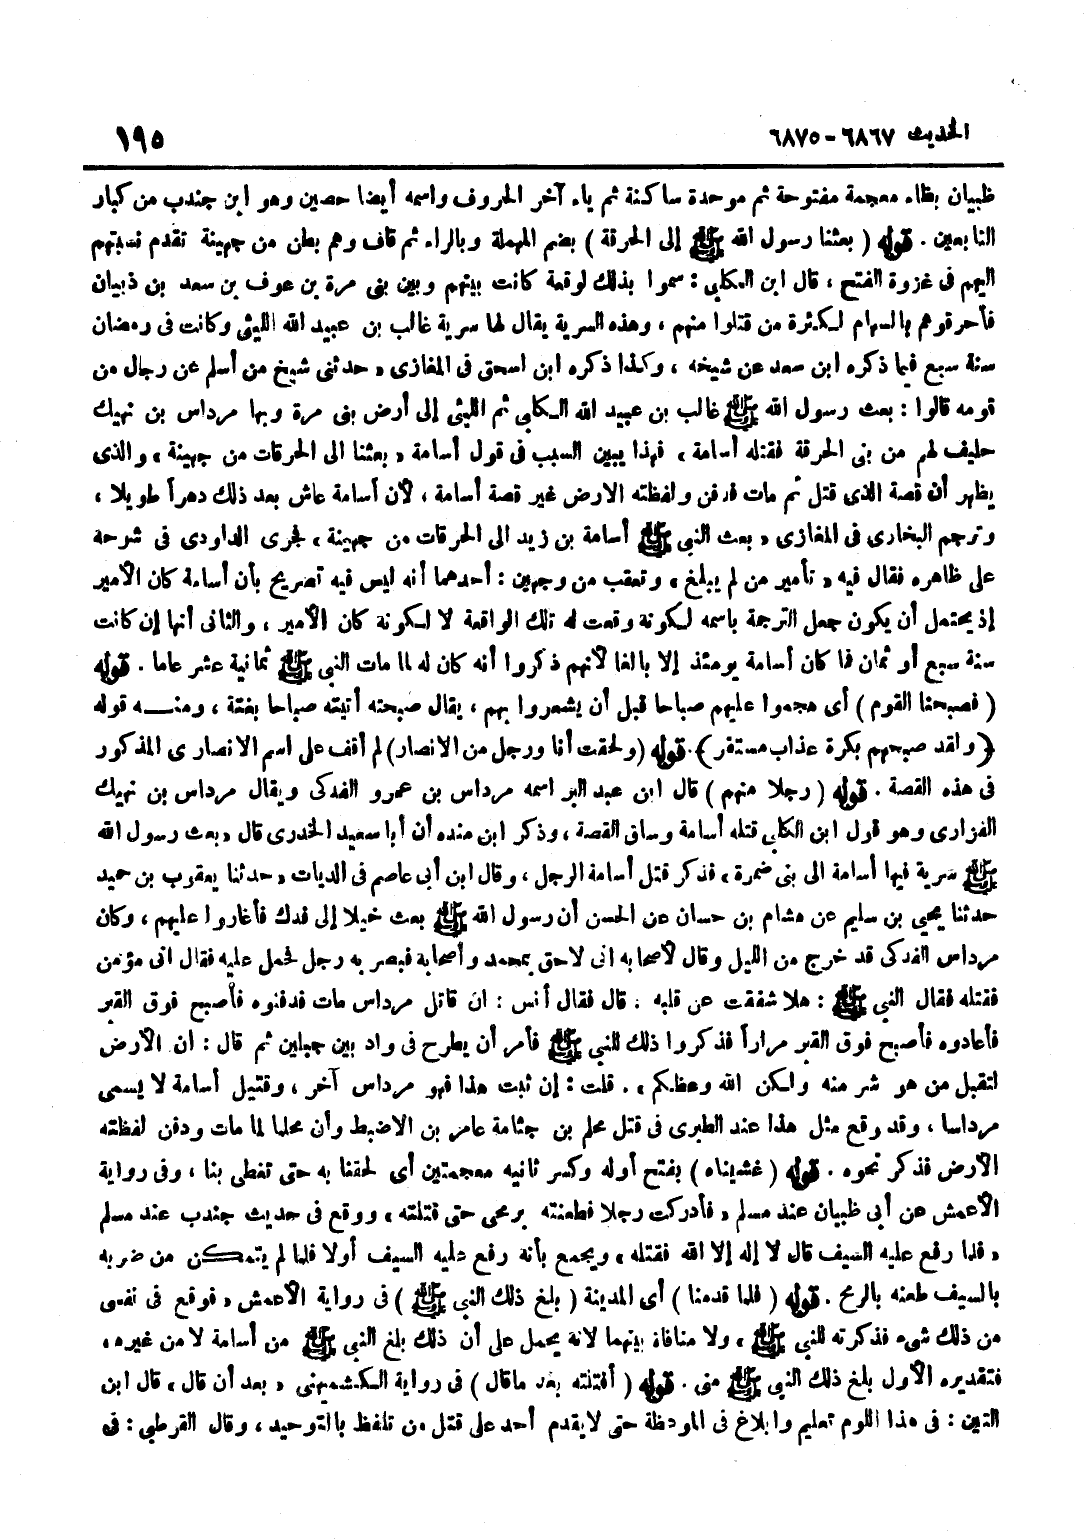 الحديث ٦٨٦٧ - ٦٨٧٥
١٩٥
ظبيان بظاء معجمة مفتوحة ثم موحدة ساكنة ثم ياء آخر الحروف واسمه أيضا حصين وهو ابن جندب من كبار
التابعين . قوله ( بعثنا رسول الله ﷺ إلى الحرقة ) بضم المهملة وبالراء ثم قاف وهم بطن من جهينة تقدم نسبتهم
اليهم فى غزوة الفتح ، قال ابن الكلبى : سموا بذلك لوقعة كانت بينهم وبين بنى مرة بن عوف بن سعد بن ذبيان
فأحرقوهم بالسهام لكثرة من قتلوا منهم ، وهذه السرية يقال لها سرية غالب بن عبيد الله الليثى وكانت فى رمضان
سنة سبع فيما ذكره ابن سعد عن شيخه ، وكذا ذكره ابن اسحق فى المغازى « حدثنى شيخ من أسلم عن رجال من
قومه قالوا : بعث رسول الله ﷺ غالب بن عبيد الله الكلبى ثم الليثى إلى أرض بنى مرة وبها مرداس بن نهيك
حليف لهم من بنى الحرقة فقتله أسامة ، فهذا يبين السبب فى قول أسامة « بعثنا الى الحرقات من جهينة » والذى
يظهر أن قصة الذى قتل ثم مات فدفن ولفظته الارض غير قصة أسامة ، لأن أسامة عاش بعد ذلك دهراً طويلا ،
وترجم البخارى فى المغازى « بعث النبى ﷺ أسامة بن زيد الى الحرقات من جهينة » فجرى الداودى فى شرحه
على ظاهره فقال فيه « تأمير من لم يبلغ » وتعقب من وجهين : أحدهما أنه ليس فيه تصريح بأن أسامة كان الأمير
إذ يحتمل أن يكون جعل الترجمة باسمه لكونه وقعت له تلك الواقعة لا لكونه كان الأمير ، والثانى أنها إن كانت
سنة سبع أو ثمان فما كان أسامة يومئذ إلا بالغا لأنهم ذكروا أنه كان له لما مات النبى ﷺ ثمانية عشر عاما . قوله
( فصبحنا القوم ) أى هجموا عليهم صباحا قبل أن يشعروا بهم ، يقال صبحته أتيته صباحا بغتة ، ومنـــه قوله
﴿ ولقد صبحهم بكرة عذاب مستقر ﴾. قوله (ولحقت أنا ورجل من الانصار) لم أقف على اسم الانصارى المذكور
فى هذه القصة . قوله ( رجلا منهم ) قال ابن عبد البر اسمه مرداس بن عمرو الفدكى ويقال مرداس بن نهيك
الفزارى وهو قول ابن الكلبى قتله أسامة وساق القصة ، وذكر ابن منده أن أبا سعيد الخدرى قال « بعث رسول الله
ﷺ سرية فيها أسامة الى بنى ضمرة » فذكر قتل أسامة الرجل ، وقال ابن أبى عاصم فى الديات « حدثنا يعقوب بن حميد
حدثنا يحيى بن سليم عن هشام بن حسان عن الحسن أن رسول الله ﷺ بعث خيلا إلى فدك فأغاروا عليهم ، وكان
مرداس الفدكى قد خرج من الليل وقال لأصحابه انى لاحق بمحمد وأصحابه فبصر به رجل فحمل عليه فقال انى مؤمن
فقتله فقال النبى ﷺ : هلا شققت عن قلبه . قال فقال أنس : ان قاتل مرداس مات فدفنوه فأصبح فوق القبر
فأعادوه فأصبح فوق القبر مراراً فذكروا ذلك للنبى ﷺ فأمر أن يطرح فى واد بين جبلين ثم قال : ان الأرض
لتقبل من هو شر منه ولكن الله وعظكم » . قلت : إن ثبت هذا فهو مرداس آخر ، وقتيل أسامة لا يسمى
مرداسا ، وقد وقع مثل هذا عند الطبرى فى قتل محلم بن جثامة عامر بن الاضبط وأن محلما لما مات ودفن لفظته
الأرض فذكر نحوه . قوله ( غشيناه ) بفتح أوله وكسر ثانيه معجمتين أى لحقنا به حتى تغطى بنا ، وفى رواية
الأعمش عن أبى ظبيان عند مسلم « فأدركت رجلا فطعنته برمحى حتى قتلته » ووقع فى حديث جندب عند مسلم
« فلما رفع عليه السيف قال لا إله إلا الله فقتله » ويجمع بأنه رفع عليه السيف أولا فلما لم يتمكن من ضربه
بالسيف طعنه بالرمح . قوله ( فلما قدمنا ) أى المدينة ( بلغ ذلك النبى ﷺ ) فى رواية الأعمش « فوقع فى نفسى
من ذلك شىء فذكرته للنبى ﷺ » ولا منافاة بينهما لانه يحمل على أن ذلك بلغ النبى ﷺ من أسامة لا من غيره ،
فتقديره الأول بلغ ذلك النبى ﷺ منى . قوله ( أقتلته بعد ماقال ) فى رواية الكشميهنى « بعد أن قال » قال ابن
التين : فى هذا اللوم تعليم وابلاغ فى الموعظة حتى لا يقدم أحد على قتل من تلفظ بالتوحيد ، وقال القرطبى : فى